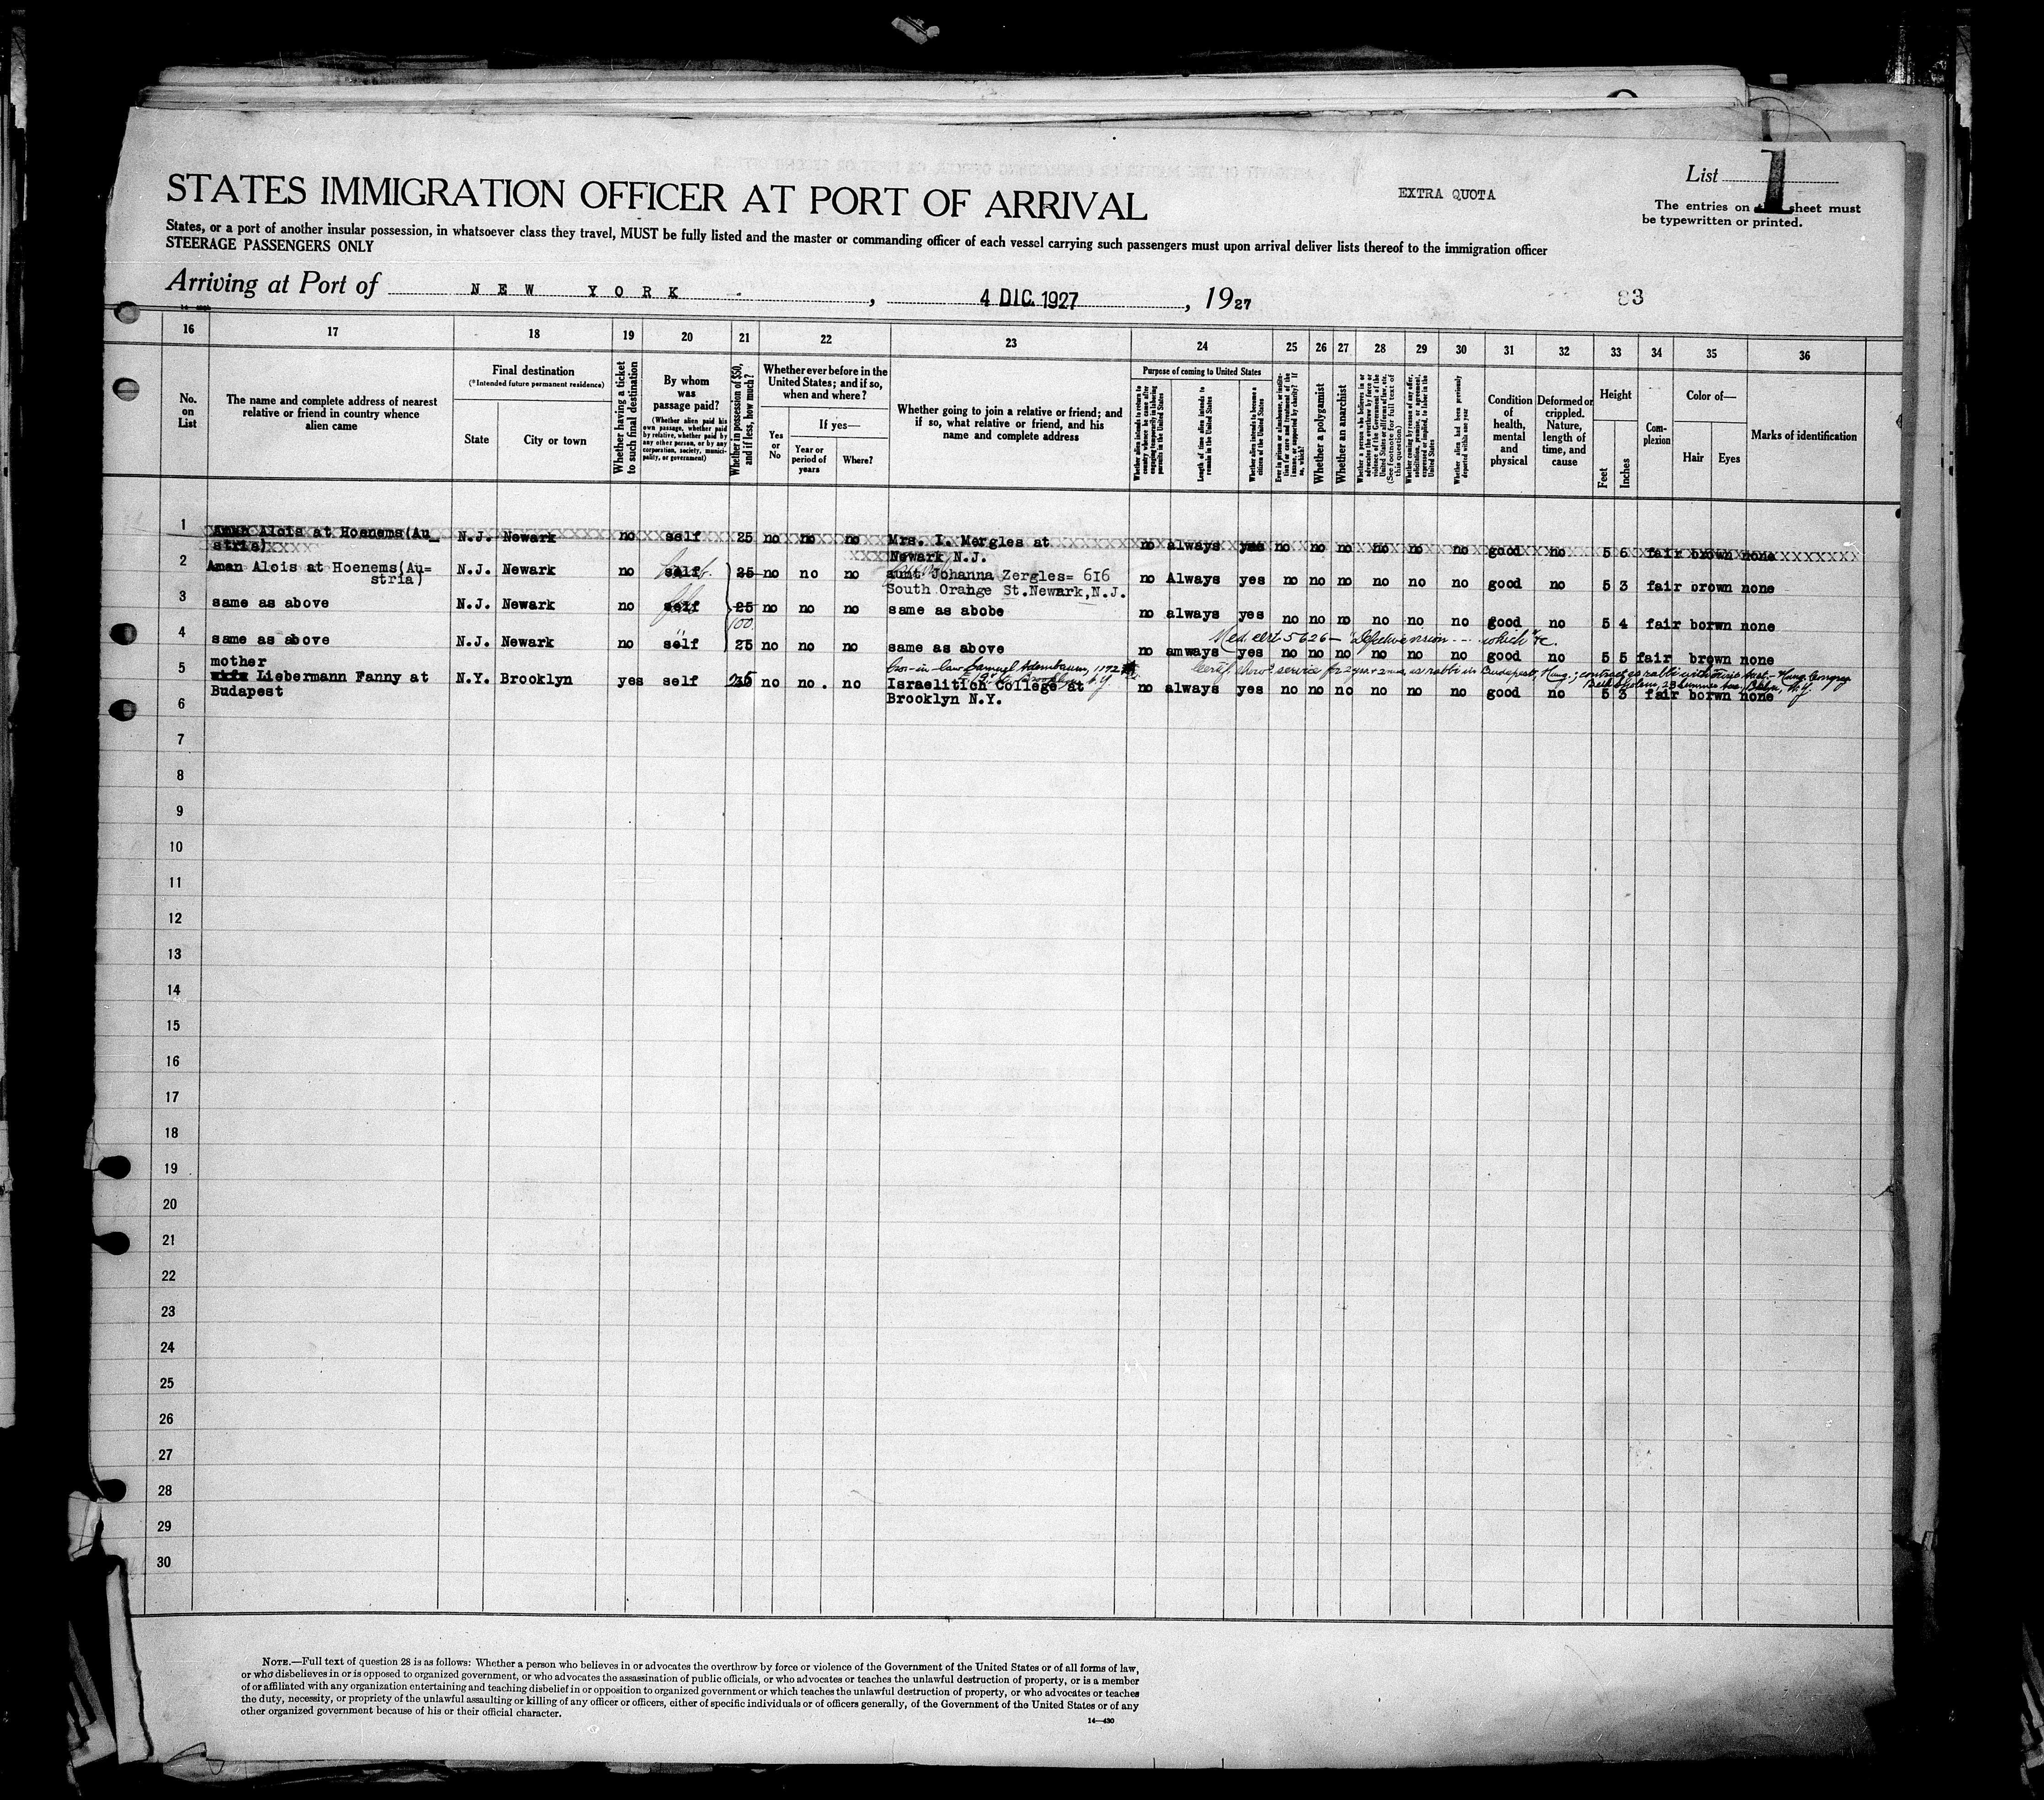 STATES IMMIGRATION OFFICER AT PORT OF ARRIVAL
EXTRA QUOTA
List 1
The entries on sheet must
be typewritten or printed.
States, or a port of another insular possession, in whatsoever class they travel, MUST be fully listed and the master or commanding officer of each vessel carrying such passengers must upon arrival deliver lists thereof to the immigration officer
STEERAGE PASSENGERS ONLY
Arriving at Port of NEW YORK, 4 DIC. 1927, 1927
83
16 17 18 19 20 21 22 23 24 25 26 27 28 29 30 31 32 33 34 35 36
No. on List
The name and complete address of nearest relative or friend in country whence alien came
Final destination
(*Intended future permanent residence)
State
City or town
Whether having a ticket to such final destination
By whom was passage paid?
(Whether alien paid his own passage, whether paid by relative, whether paid by any other person, or by any corporation, society, municipality, or government)
Whether in possession of $50, and if less, how much?
Whether ever before in the United States; and if so, when and where?
Yes or No
If yes—
Year or period of years
Where?
Whether going to join a relative or friend; and if so, what relative or friend, and his name and complete address
Purpose of coming to United States
Whether alien intends to return to country whence he came after engaging temporarily in laboring pursuits in the United States
Length of time alien intends to remain in the United States
Whether alien intends to become a citizen of the United States
Ever in prison or almshouse, or institution for care and treatment of the insane, or supported by charity? If so, which?
Whether a polygamist
Whether an anarchist
Whether a person who believes in or advocates the overthrow by force or violence of the Government of the United States or all forms of law, etc. (See footnote for full text of this question)
Whether coming by reason of any offer, solicitation, promise, or agreement, expressed or implied, to labor in the United States
Whether alien had been previously deported within one year
Condition of health, mental and physical
Deformed or crippled. Nature, length of time, and cause
Height
Feet
Inches
Complexion
Color of—
Hair
Eyes
Marks of identification
1 Aman Alois at Hoenems(Au_ N.J. Newark no self 25 no no no Mrs. I. Mergles at no always yes no no no no no no good no 5 6 fair brown none
stria) Newark N.J.
2 Aman Alois at Hoenems(Au= N.J. Newark no self 25 no no no aunt Johanna Zergles= 616 no Always yes no no no no no no good no 5 3 fair brown none
stria) South Orange St.Newark,N.J.
3 same as above N.J. Newark no self 25 no no no same as abobe no always yes no no no no no no good no 5 4 fair borwn none
100
Med. cert 5626 - Defective vision - - - which &c.
4 same as above N.J. Newark no self 25 no no no same as above no amways yes no no no no no no good no 5 5 fair brown none
mother
bro-in-law Samuel
service for 2 yrs as rabbi in Budapest, Hung.; contract as rabbi with
5 wife Liebermann Fanny at N.Y. Brooklyn yes self 25 no no. no Israelitich College at no always yes no no no no no no good no 5 3 fair borwn none
Budapest Brooklyn N.Y.
6
7
8
9
10
11
12
13
14
15
16
17
18
19
20
21
22
23
24
25
26
27
28
29
30
NOTE.—Full text of question 28 is as follows: Whether a person who believes in or advocates the overthrow by force or violence of the Government of the United States or of all forms of law,
or who disbelieves in or is opposed to organized government, or who advocates the assassination of public officials, or who advocates or teaches the unlawful destruction of property, or is a member
of or affiliated with any organization entertaining and teaching disbelief in or opposition to organized government or which teaches the unlawful destruction of property, or who advocates or teaches
the duty, necessity, or propriety of the unlawful assaulting or killing of any officer or officers, either of specific individuals or of officers generally, of the Government of the United States or of any
other organized government because of his or their official character.
14—430